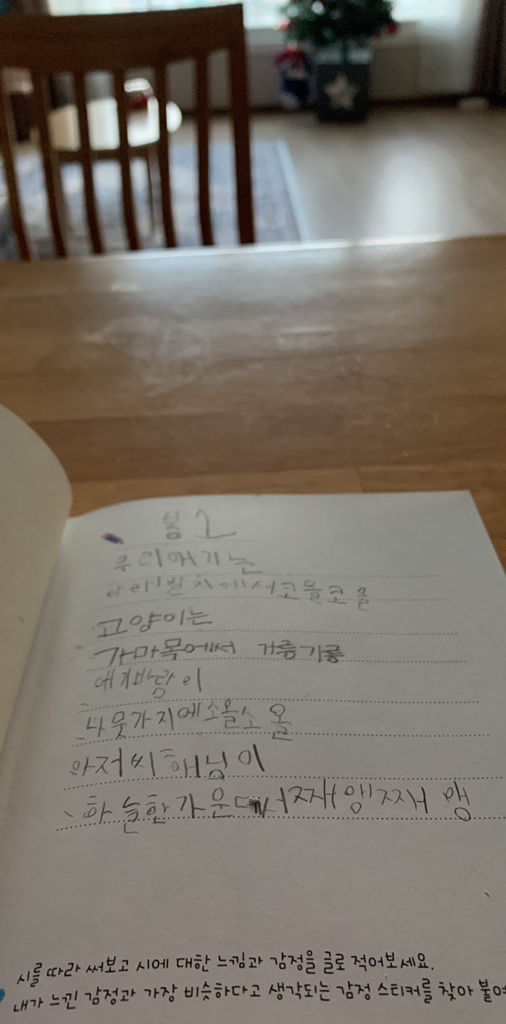 봄 1
우리애기는
아래발치에서코올코올
고양이는
가마목에서 가릉가릉
애기바람이
나뭇가지에소올소올
아저씨해님이
하늘한가운데서째앵째앵
시를 따라 써보고 시에 대한 느낌과 감정을 글로 적어보세요.
내가 느낀 감정과 가장 비슷하다고 생각되는 감정 스티커를 찾아 붙여